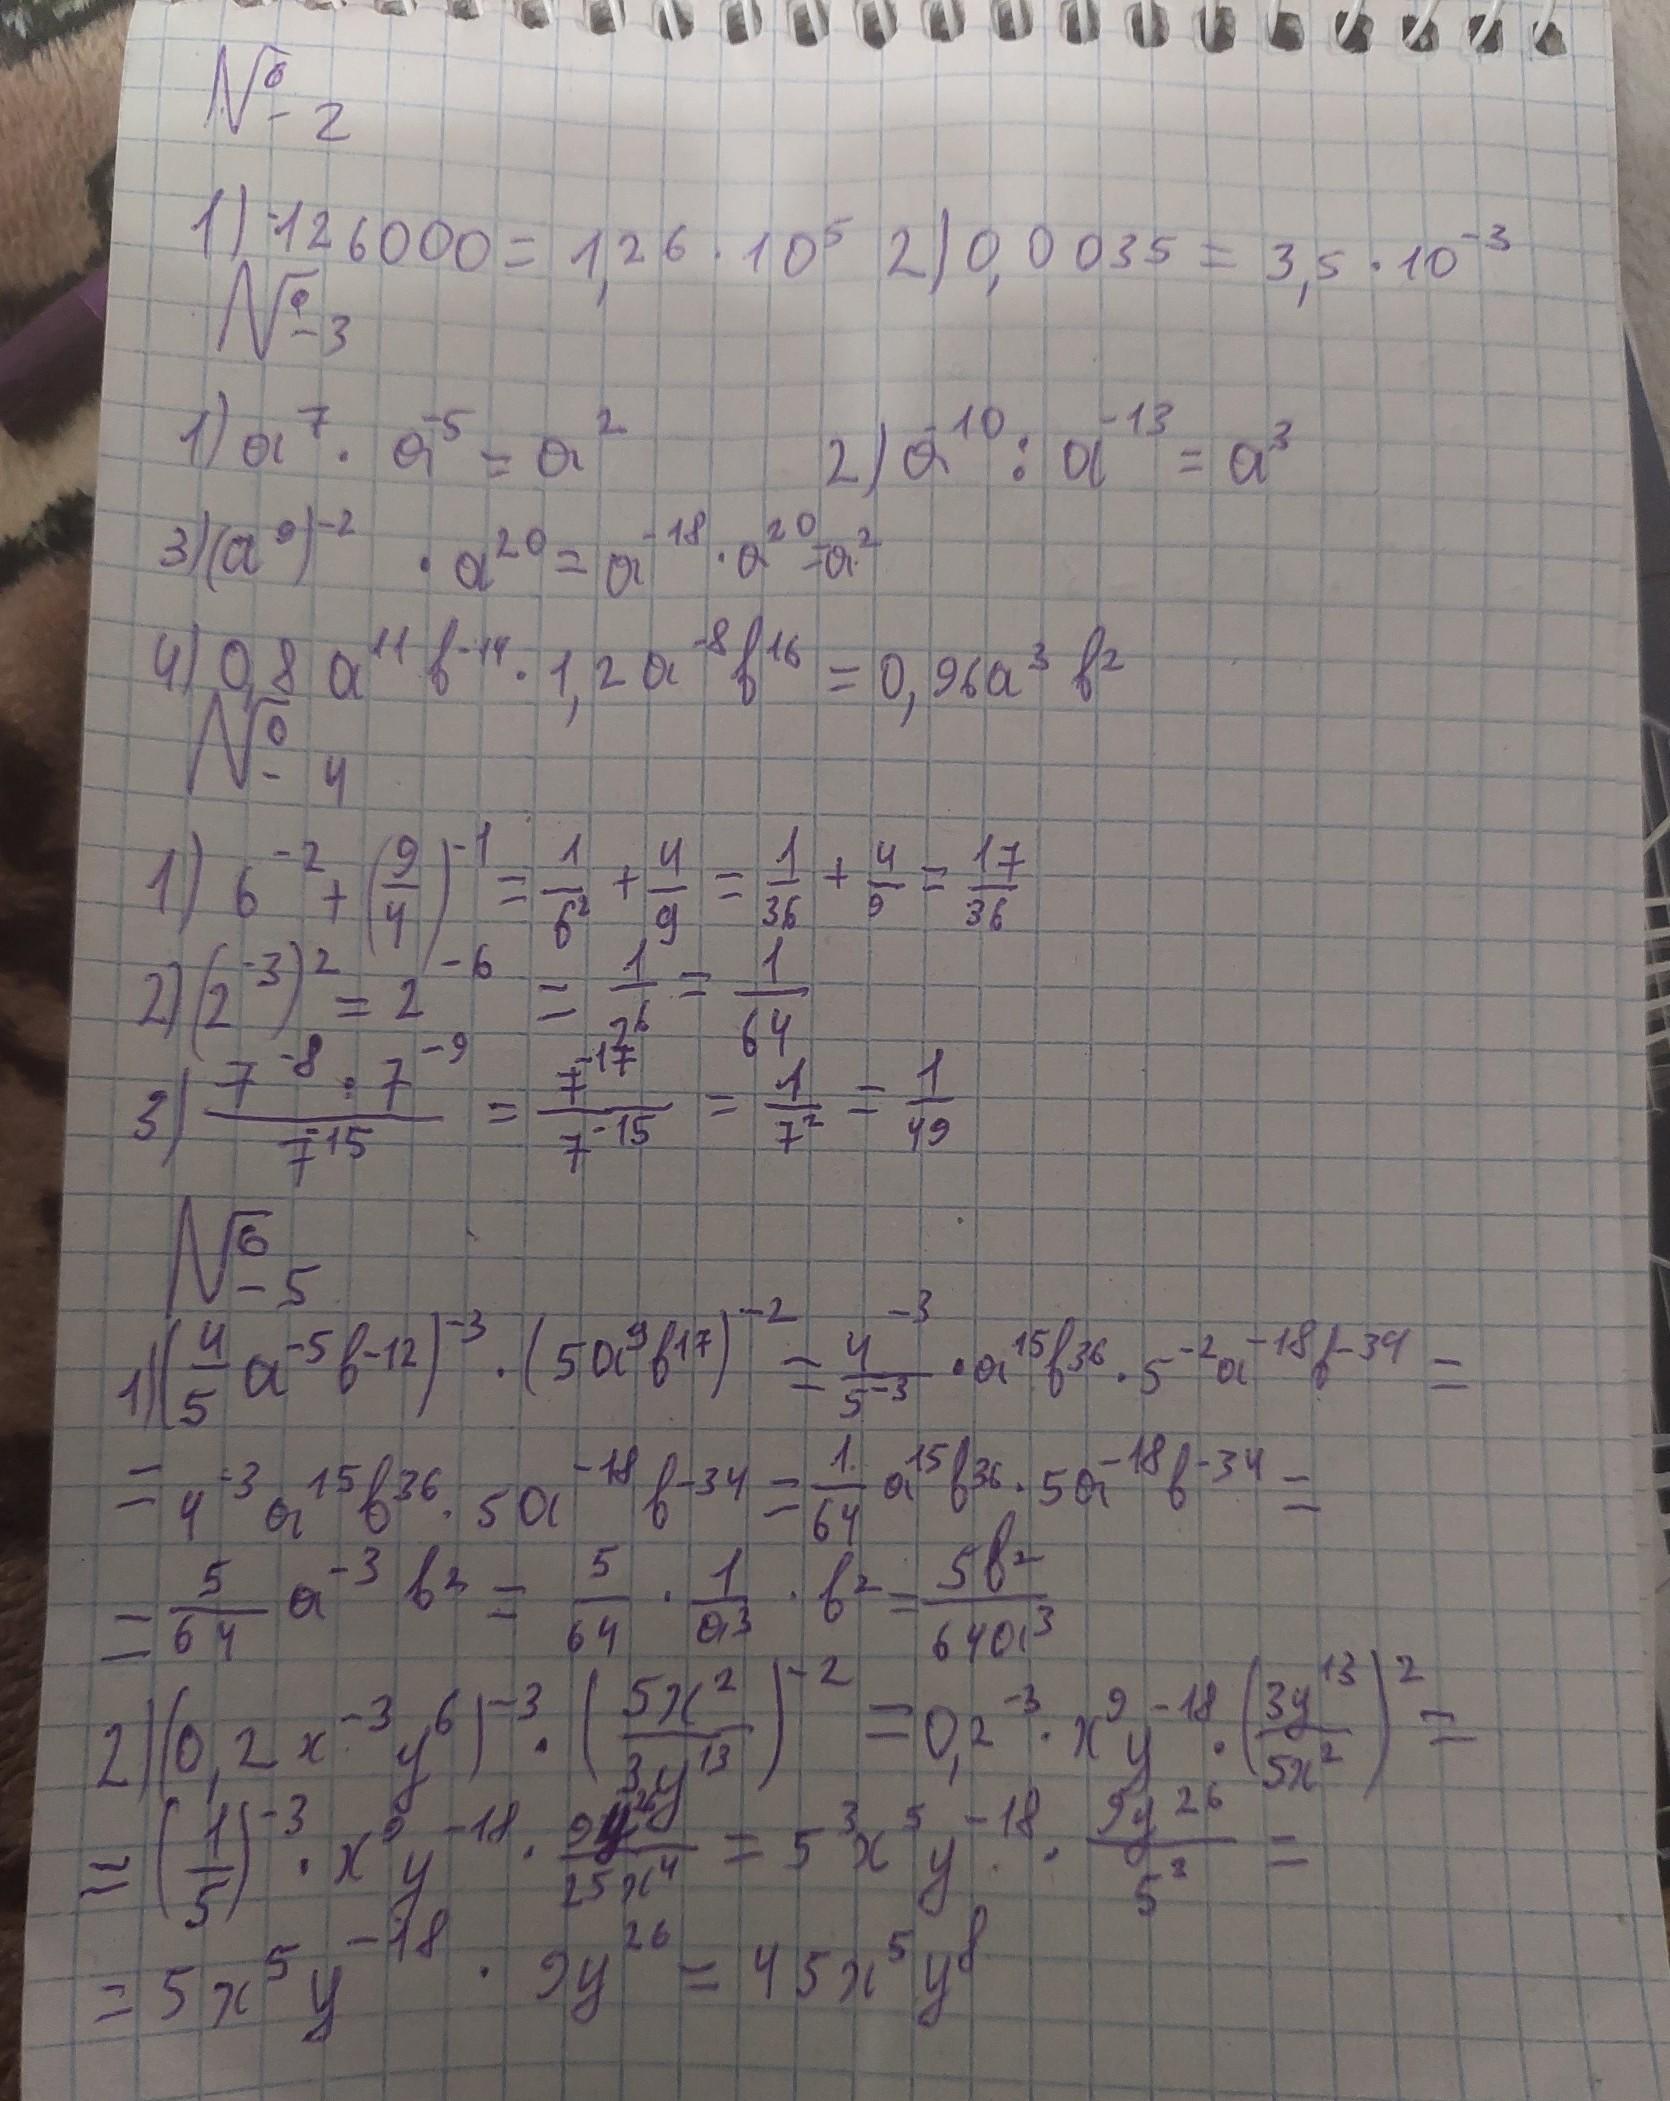 № 2
1) 126000 = 1,26 · 10⁵ 2) 0,0035 = 3,5 · 10⁻³
№ 3
1) a⁷ · a⁻⁵ = a² 2) a⁻¹⁰ : a⁻¹³ = a³
3) (a⁹)⁻² · a²⁰ = a⁻¹⁸ · a²⁰ = a²
4) 0,8 a¹¹ b⁻¹⁴ · 1,2 a⁻⁸ b¹⁶ = 0,96a³ b²
№ 4
1) 6⁻² + (9/4)⁻¹ = 1/6² + 4/9 = 1/36 + 4/9 = 17/36
2) (2⁻³)² = 2⁻⁶ = 1/2⁶ = 1/64
3) (7⁻⁸ · 7⁻⁹)/7⁻¹⁵ = 7⁻¹⁷/7⁻¹⁵ = 1/7² = 1/49
№ 5
1) (4/5 a⁻⁵ b⁻¹²)⁻³ · (5a⁹b¹⁷)⁻² = 4⁻³/5⁻³ · a¹⁵b³⁶ · 5⁻²a⁻¹⁸b⁻³⁴ =
= 4⁻³ a¹⁵b³⁶ · 5a⁻¹⁸ b⁻³⁴ = 1/64 a¹⁵b³⁶ · 5a⁻¹⁸b⁻³⁴ =
= 5/64 a⁻³ b² = 5/64 · 1/a³ · b² = 5b²/64a³
2) (0,2x⁻³y⁶)⁻³ · (5x²/3y¹³)⁻² = 0,2⁻³ · x⁹y⁻¹⁸ · (3y¹³/5x²)² =
= (1/5)⁻³ · x⁹y⁻¹⁸ · 9y²⁶/25x⁴ = 5³x⁵y⁻¹⁸ · 9y²⁶/5² =
= 5x⁵y⁻¹⁸ · 9y²⁶ = 45x⁵y⁸